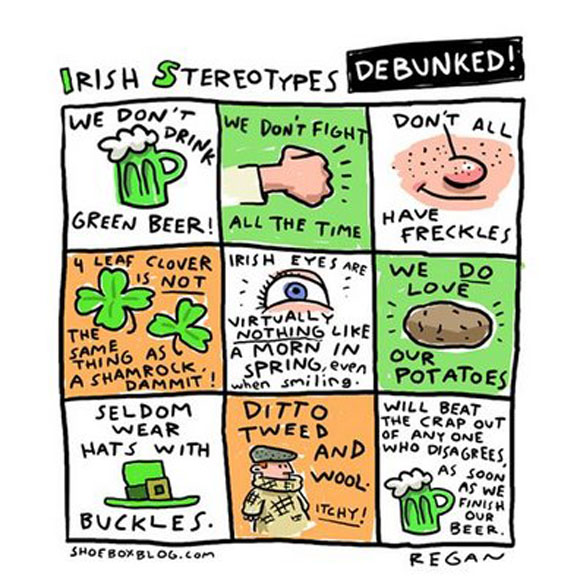 IRISH STEREOTYPES DEBUNKED!
WE DON'T
DRINK
GREEN BEER!
WE DON'T FIGHT
ALL THE TIME
DON'T ALL
HAVE
FRECKLES
4 LEAF CLOVER
IS NOT
THE
SAME
THING AS
A SHAMROCK,
DAMMIT!
IRISH EYES ARE
VIRTUALLY
NOTHING LIKE
A MORN IN
SPRING, even
when smiling.
WE DO
LOVE
OUR
POTATOES
SELDOM
WEAR
HATS WITH
BUCKLES.
DITTO
TWEED
AND
WOOL.
ITCHY!
WILL BEAT
THE CRAP OUT
OF ANY ONE
WHO DISAGREES,
AS SOON
AS WE
FINISH
OUR
BEER.
SHOEBOXBLOG.COM
REGAN